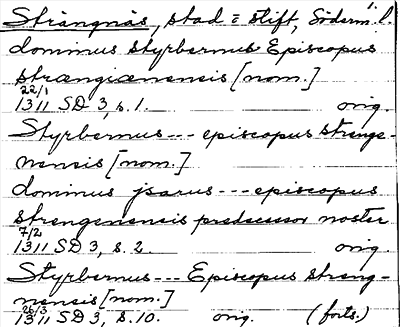 Strängnäs, stad o stift, Söderm. l.
dominus styrbernus Episcopus
strængiænensis [nom.]
22/1
1311 SD 3, s. 1. orig.
Styrbernus --- episcopus strenge-
nensis [nom.]
dominus ysarus --- episcopus
strengenensis predecessor noster
7/2
1311 SD 3, s. 2. orig.
Styrbernus --- Episcopus streng-
nensis [nom.]
26/3
1311 SD 3, s. 10. orig. (forts.)